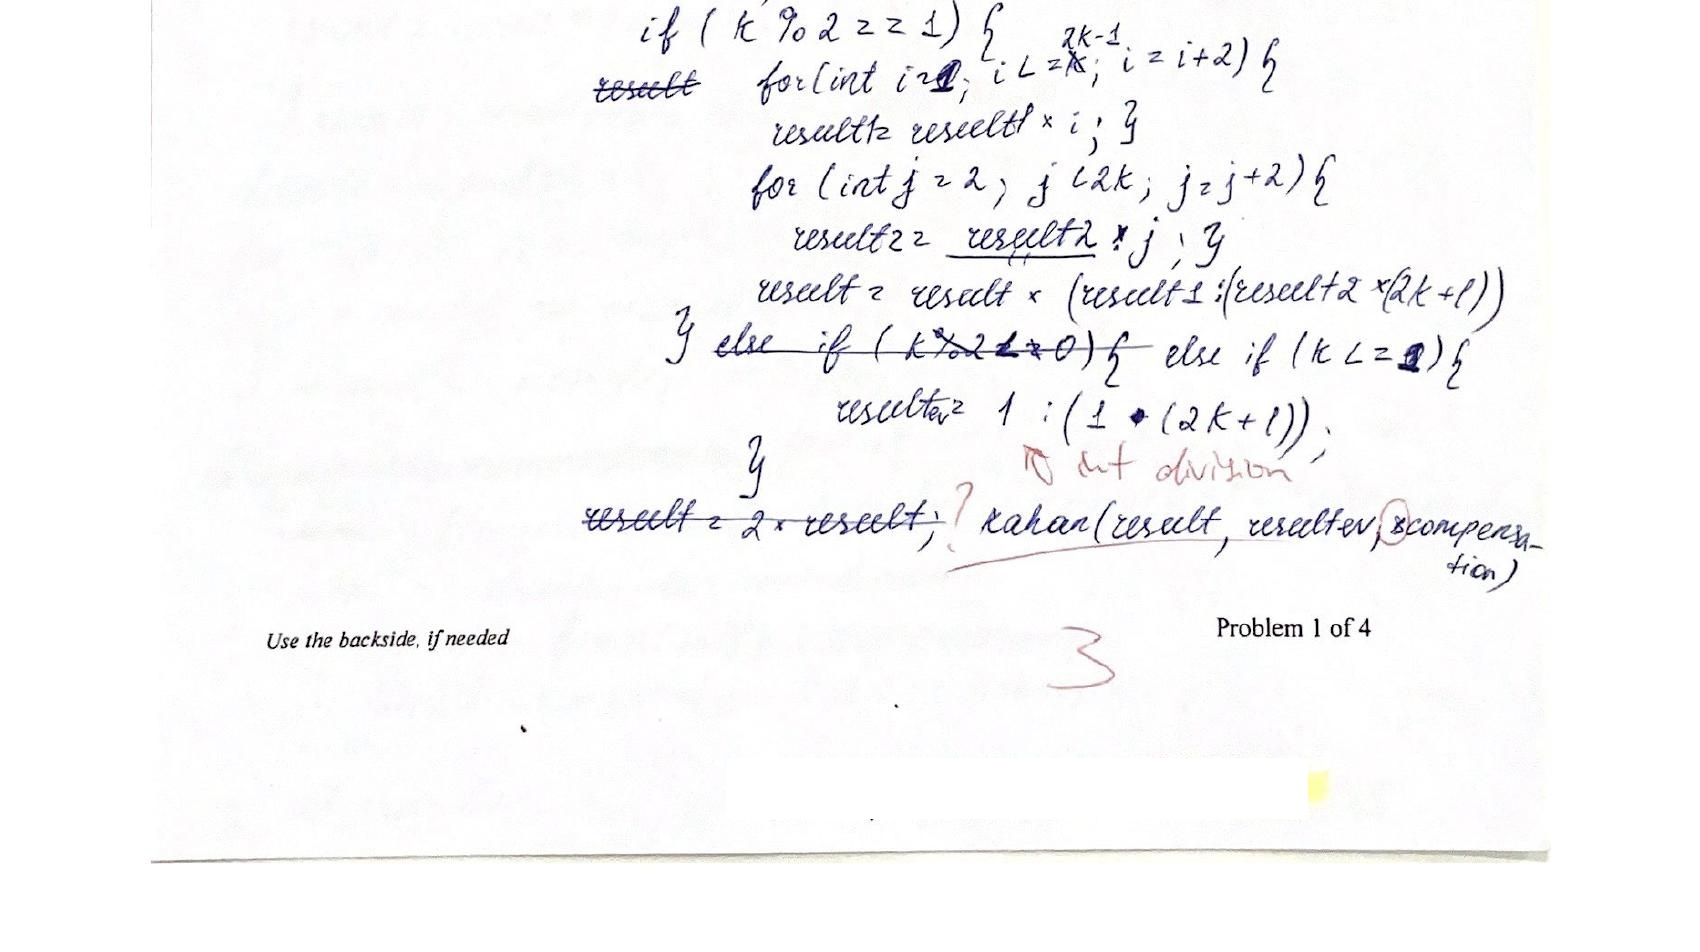 if ( k % 2 == 1) {
result for(int i=1; i <= k; 2k-1 i = i+2) {
result1= result1 * i ; }
for (int j = 2 ; j < 2k ; j=j+2) {
result2= result2 * j ; }
result = result * (result1 :(result2 *(2k+1))
} else if ( k%2 == 0) { else if (k <= 1) {
resultev= 1 : (1 • (2k+1)) ;
int division
}
result = 2 * result; ? kahan(result, resultev, &compensa-
tion)
Use the backside, if needed
Problem 1 of 4
3